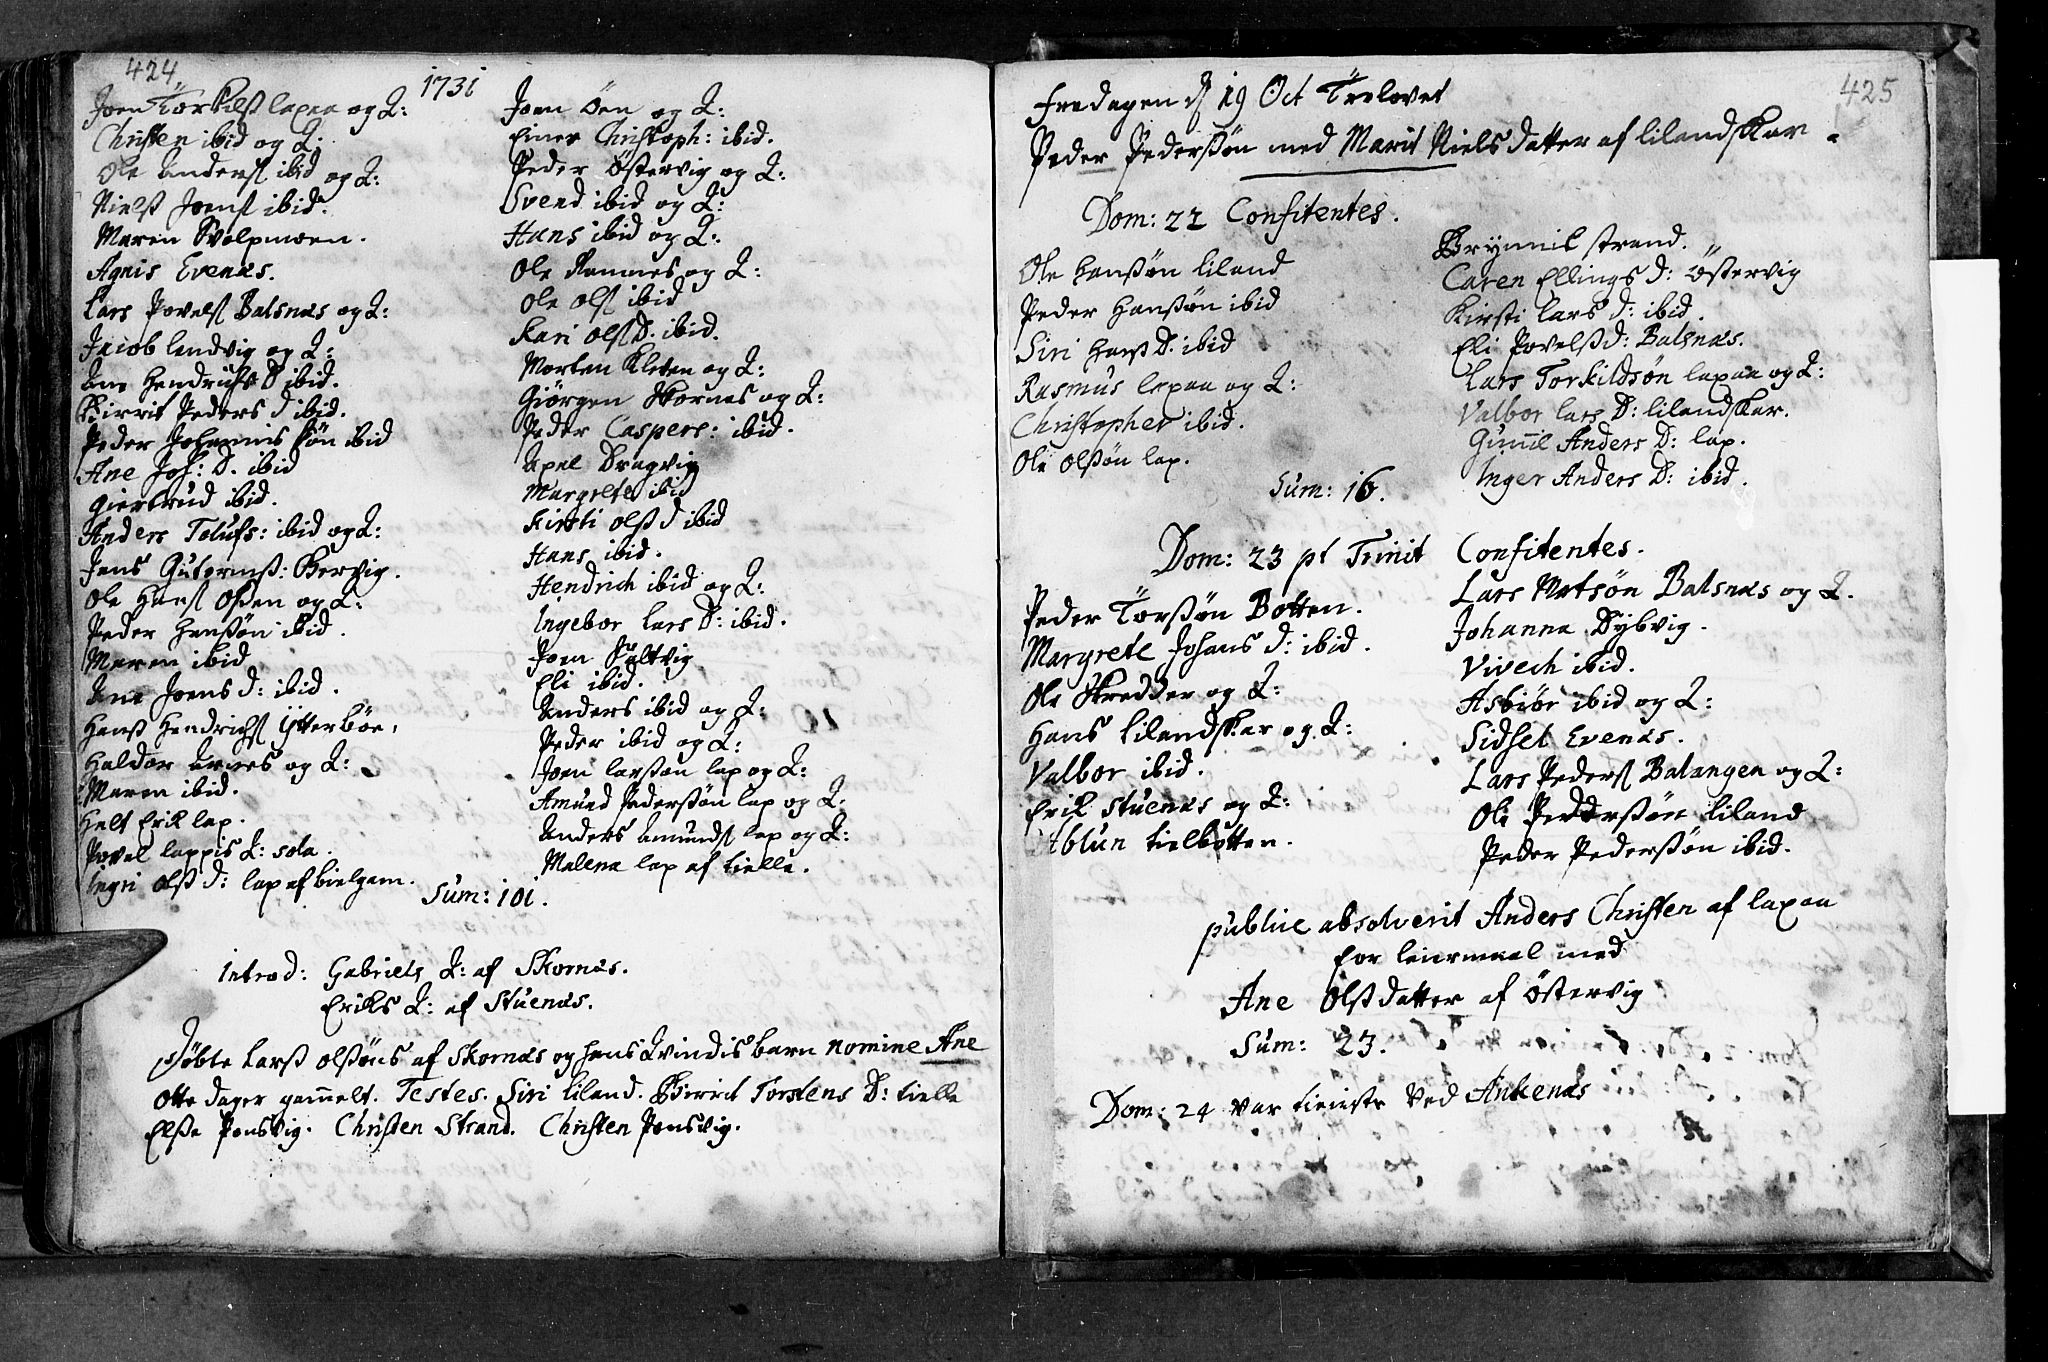 424
1731
Joen Törkilsß laxaa og Q:
Christen ibid og Q:
Ole Andersß ibid og Q:
Nielß Joensß ibid.
Maren Svolpmoen.
Agnis Evenæs.
Lars Povelsß Balsnæs og Q:
Jacob lendvig og Q:
Ane Hendrichs D ibid.
Birrit Peders d ibid.
Peder Johannis søn ibid
Ane Joh: D. ibid
Giertrud ibid.
Anders Tolufs: ibid og Q:
Jens Gutormß: Bervig.
Ole Hansß Osen og Q:
Peder Hanßøn ibid.
Maren ibid
Ane Joens d: ibid.
Hanß Hendrichsß Ytterböe,
Haldor Arnes og Q:
Maren ibid.
Helt Erik lap.
Povel lappis Q: sola.
Ingri Olß d: lap af bielgam.
Joen Öen og Q:
Einer Christoph: ibid.
Peder Östervig og Q:
Svend ibid og Q:
Hans ibid og Q:
Ole Ramnes og Q:
Ole Olsß ibid
Kari Olsß D. ibid.
Morten Kleten og Q:
Giörgen Skornes og Q:
Peder Caspers: ibid.
Axel Dragvig
Margrete ibid
Kirsti Olß d ibid
Hans ibid.
Hendrich ibid og Q:
Ingebor Lars D: ibid.
Joen Sültvig
Eli ibid.
Anders ibid og Q:
Peder ibid og Q:
Joen larßøn lap og Q:
Amund Pederßøn lap og Q.
Anders Amundsß lap og Q:
Malena lap af tielle.
Sum: 101.
Introd: Gabriels Q: af Skornæs.
Eriks Q: af Stuenæs.
Döbte Larß Olßöns af Skornæs og hans Qvindis barn nomine Ane
otte dager gam̄elt. Testes. Siri Liland. Birrit Torstens D: tielle
Elße Pensvig. Christen Strand. Christen Pensvig.
425
Fredagen d 19 Oct Trolovet
Peder Pederßøn med Marit Nielsdatter af lilandskar.
Dom: 22 Confitentes.
Ole Hanßøn liland
Peder Hanßøn ibid
Siri Hanß D. ibid
Rasmus laxaa og Q:
Christopher ibid.
Ole Olßøn lap.
Brynnil strand.
Caren Ellings d: Östervig
Kirsti Lars d: ibid.
Eli Povelß d: Balsnæs.
Lars Torkildsøn laxaa og Q:
Valbor lars D: lilandskar.
Gun̄il Anders D: lap.
Inger Anders D: ibid.
Sum: 16.
Dom: 23 pt Trinit Confitentes.
Peder Törßøn Botten.
Margrete Johans d: ibid.
Ole Skredder og Q:
Hans Lilandskar og Q:
Valbor ibid.
Erik Stuenæs og Q:
Ablun tielbotten.
Lars Matsøn Balsnæs og Q.
Johanna Dybvig.
Vivech ibid.
Asbiör ibid og Q:
Sidsel Evenæs.
Lars Pedersß Balangen og Q:
Ole Pederßøn liland
Peder Pederßøn ibid.
publice absolverit Anders Christen af laxaa
for leiermaal med
Ane Olßdatter af Östervig
Sum: 23.
Dom: 24 var tieniste ved Ankenæs